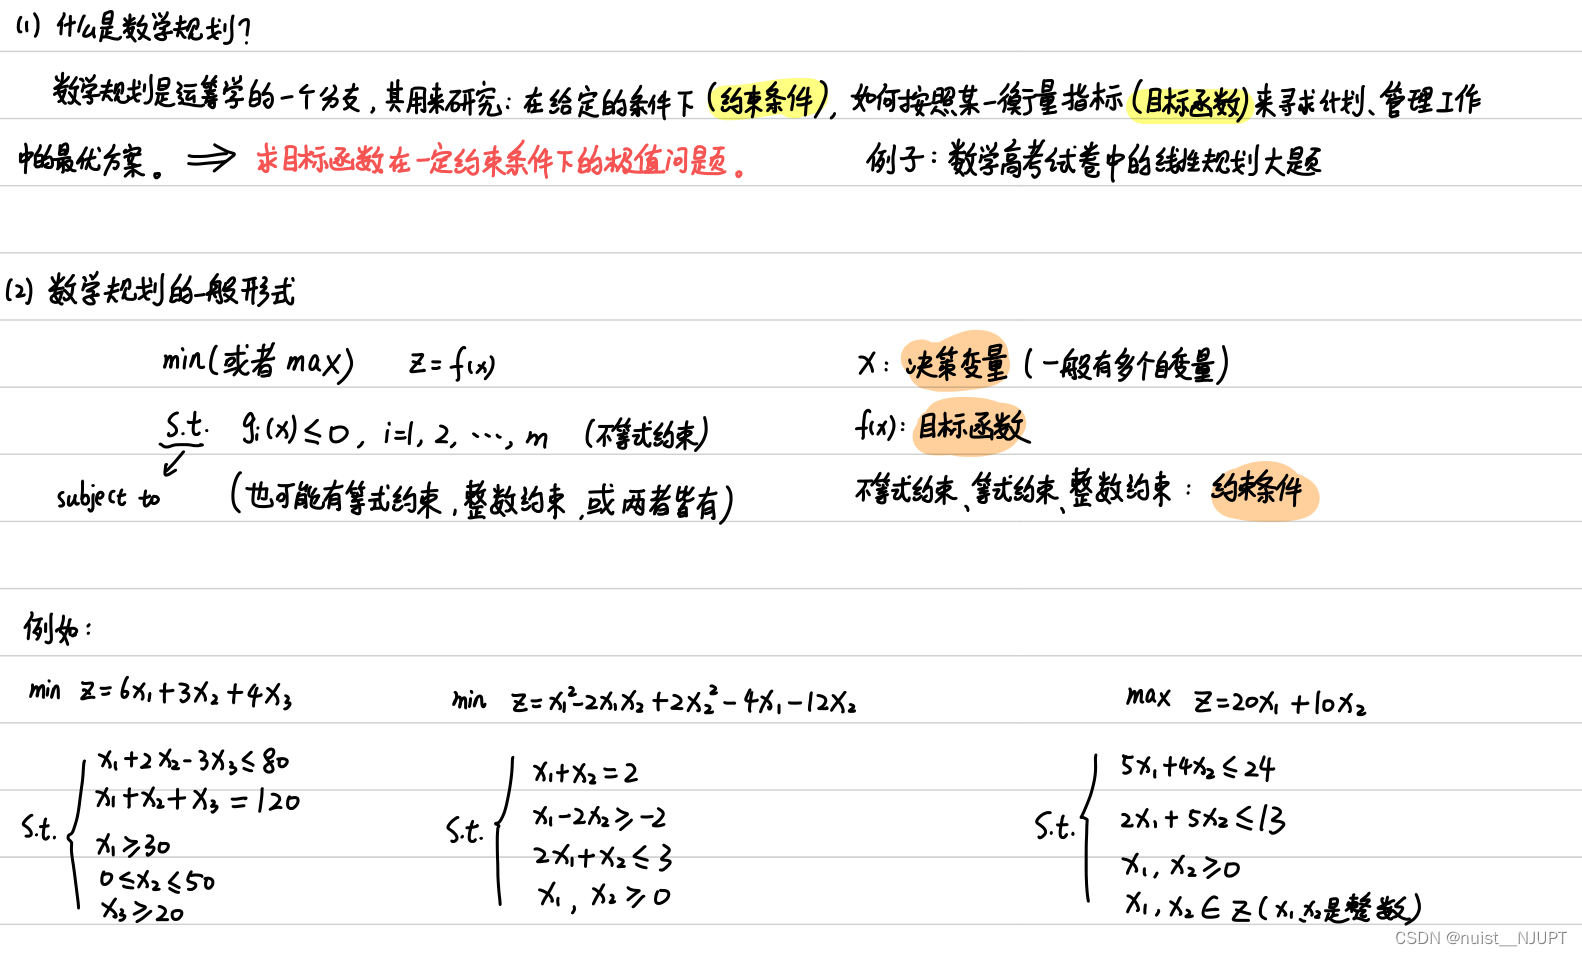 (1) 什么是数学规划?
数学规划是运筹学的一个分支,其用来研究:在给定的条件下(约束条件),如何按照某一衡量指标(目标函数)来寻求计划、管理工作
中的最优方案。 ⇒ 求目标函数在一定约束条件下的极值问题。 例子:数学高考试卷中的线性规划大题
(2) 数学规划的一般形式
min(或者 max) z=f(x) x:决策变量(一般有多个自变量)
s.t. gᵢ(x)≤0, i=1, 2, ⋯, m (不等式约束) f(x):目标函数
subject to (也可能有等式约束,整数约束,或两者皆有) 不等式约束、等式约束、整数约束:约束条件
例如:
min z=6x₁+3x₂+4x₃ min z=x₁²-2x₁x₂+2x₂²-4x₁-12x₂ max z=20x₁+10x₂
s.t.
x₁+2x₂-3x₃≤80
x₁+x₂+x₃=120
x₁≥30
0≤x₂≤50
x₃≥20
s.t.
x₁+x₂=2
x₁-2x₂≥-2
2x₁+x₂≤3
x₁, x₂≥0
s.t.
5x₁+4x₂≤24
2x₁+5x₂≤13
x₁, x₂≥0
x₁, x₂∈Z(x₁、x₂是整数)
CSDN @nuist__NJUPT